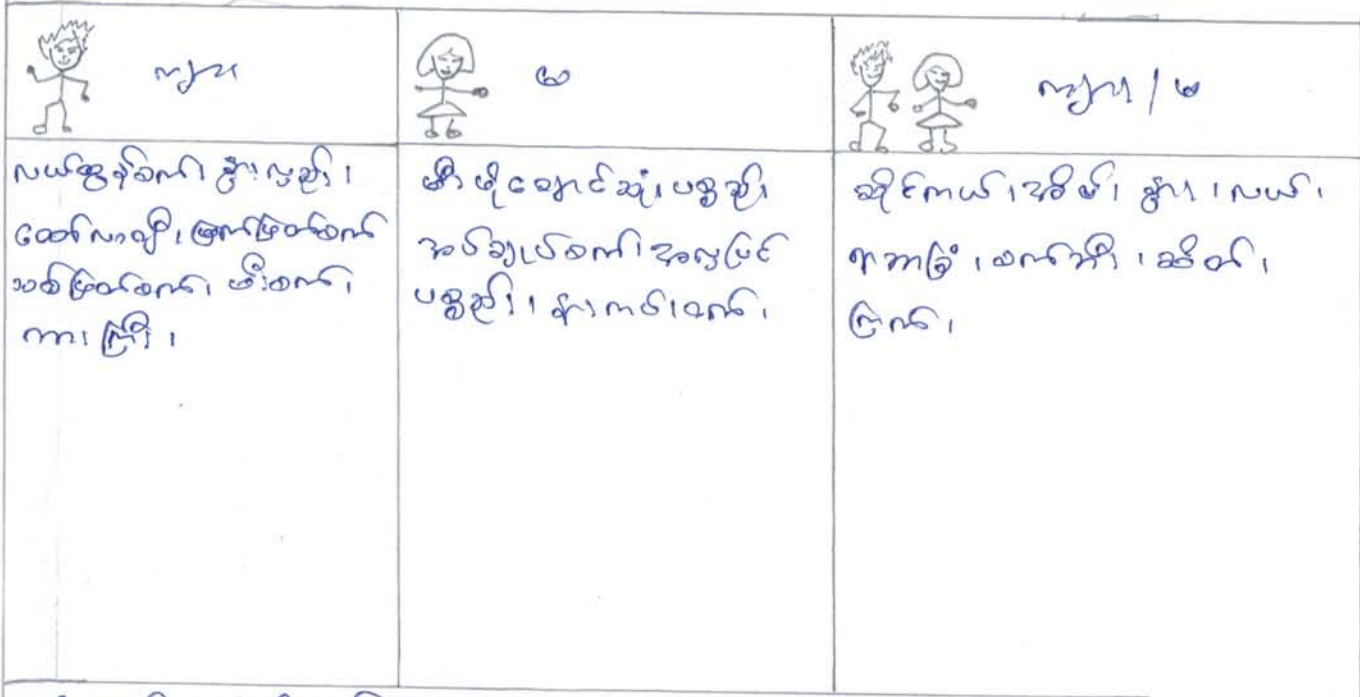 ကျား
မ
ကျား / မ
လယ်ထွန်စက်၊ နွားလှည်း၊
ထော်လာဂျီ၊ မြက်ဖြတ်စက်
သစ်ဖြတ်စက်၊ မီးစက်၊
ကား၊ ခြံ၊
မီးဖိုချောင်သုံးပစ္စည်း
အပ်ချုပ်စက်၊ အလှပြင်
ပစ္စည်း၊ နားကပ်၊ ဝက်၊
ဆိုင်ကယ်၊ အိမ်၊ နွား၊ လယ်၊
ရာဘာခြံ၊ စက်ဘီး၊ ဆိတ်၊
ကြက်၊